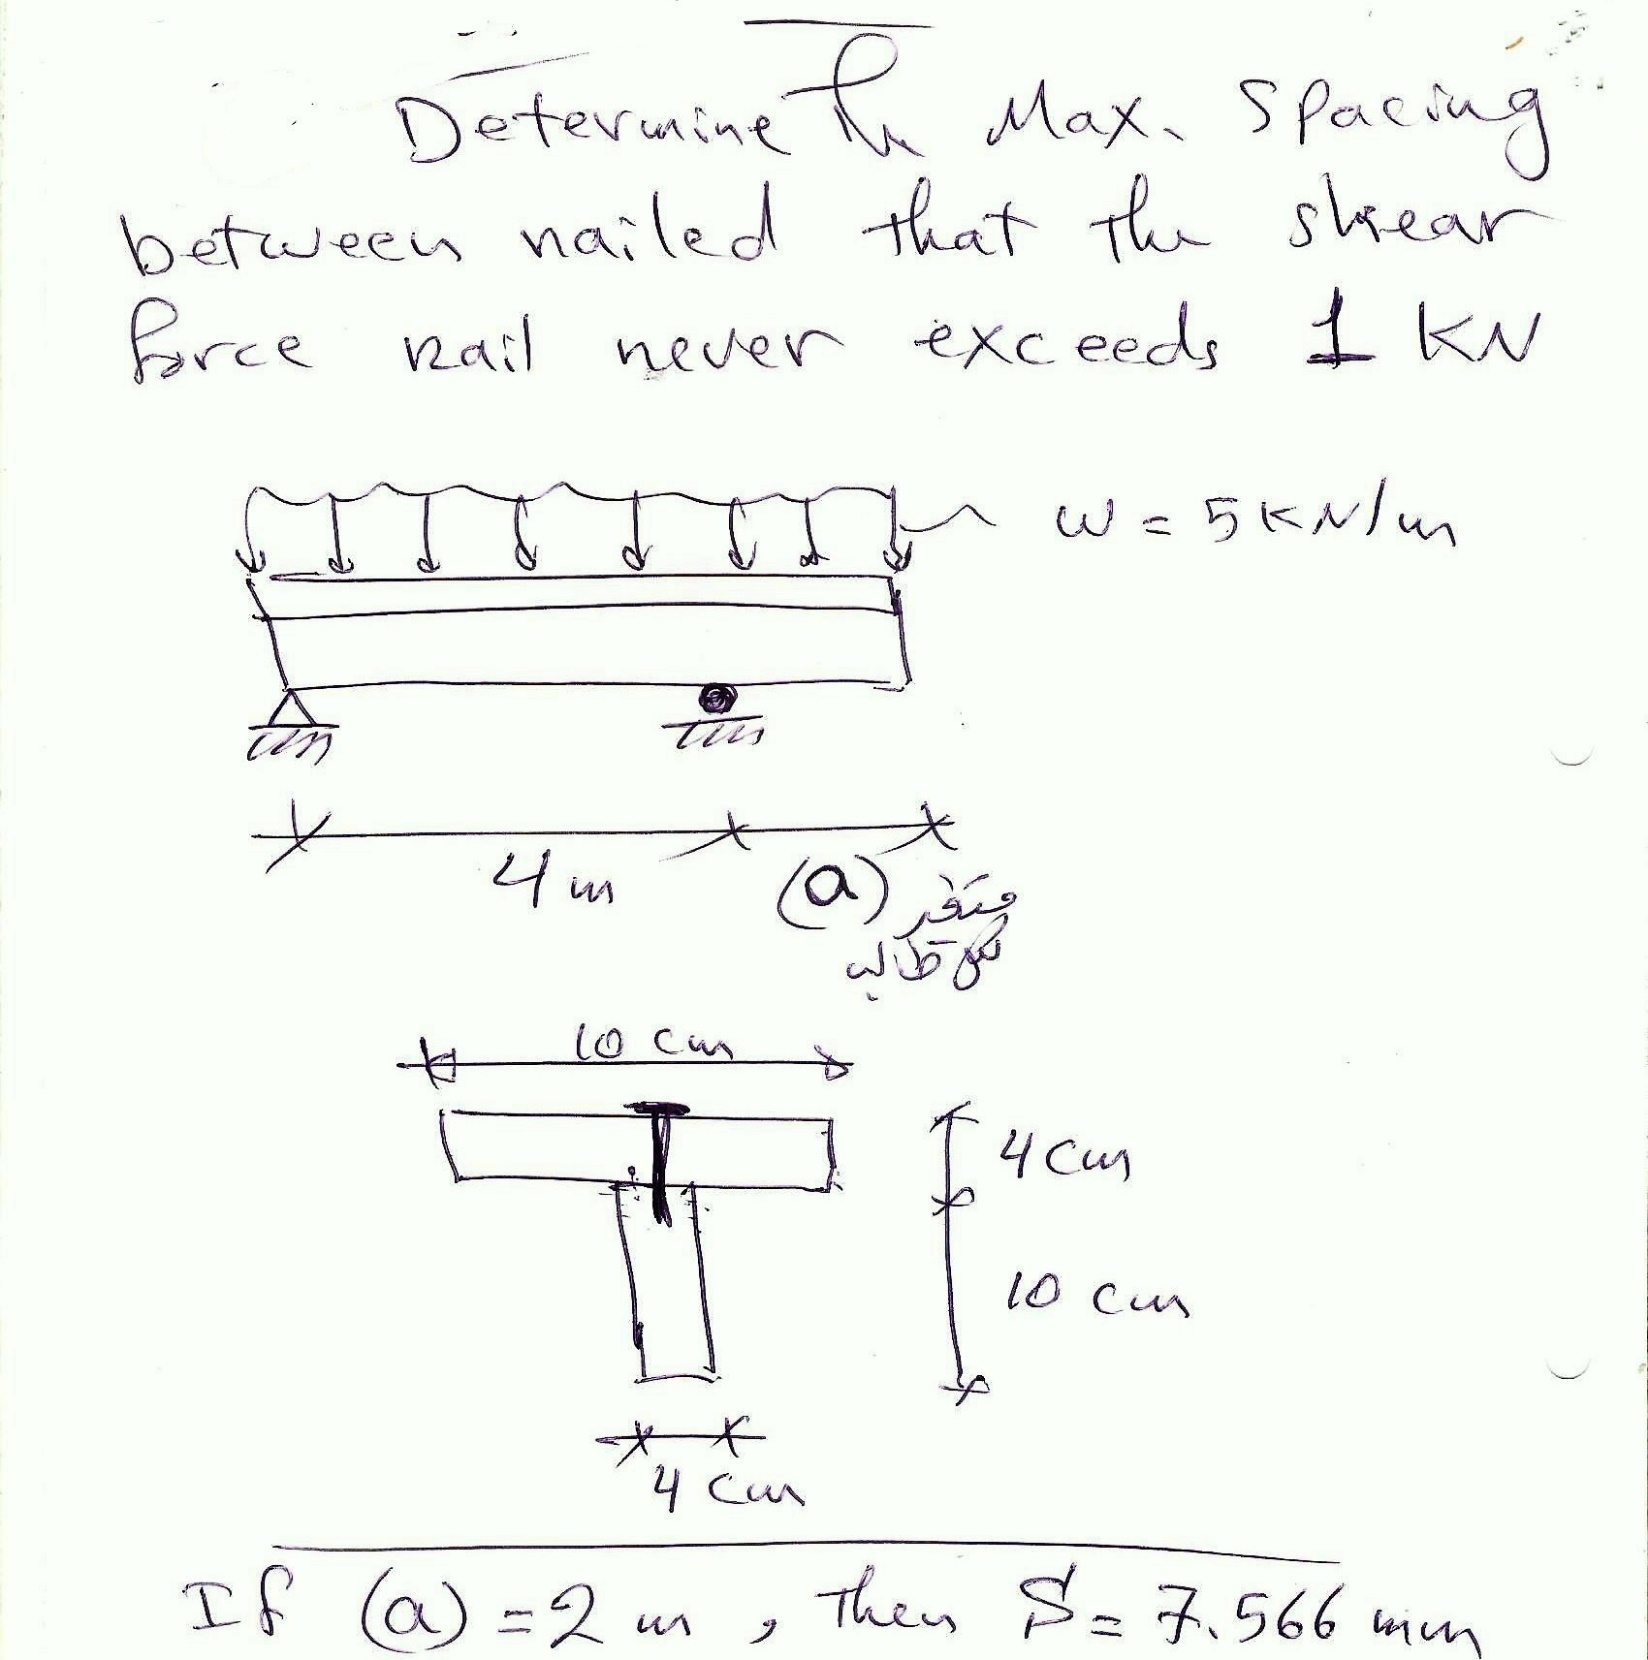 Determine the Max. Spacing
between nailed that the shear
force nail never exceeds 1 KN
w = 5 KN/m
4 m
(a)
متغير
لكل طالب
10 cm
4 cm
10 cm
4 cm
If (a) = 2 m , then S = 7.566 mm